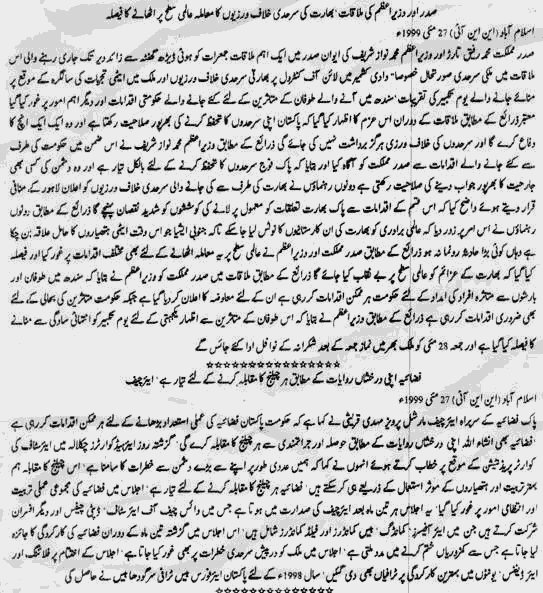 صدر اور وزیراعظم کی ملاقات' بھارت کی سرحدی خلاف ورزیوں کا معاملہ عالمی سطح پر اٹھانے کا فیصلہ
اسلام آباد (این این آئی) 27 مئی 1999ء
صدر مملکت محمد رفیق تارڑ اور وزیراعظم محمد نواز شریف کی ایوان صدر میں ایک اہم ملاقات جمعرات کو ہوئی ڈیڑھ گھنٹہ سے زائد دیر تک جاری رہنے والی اس
ملاقات میں ملکی سرحدی صورتحال خصوصاً" وادی کشمیر میں لائن آف کنٹرول پر بھارتی سرحدی خلاف ورزیوں اور ملک میں ایٹمی تجربات کی سالگرہ کے موقع پر
منائے جانے والے یوم تکبیر کی تقریبات' سندھ میں آنے والے طوفان کے متاثرین کے لئے کئے جانے والے حکومتی اقدامات اور دیگر اہم امور پر غور کیا گیا
معتبر ذرائع کے مطابق ملاقات کے دوران اس عزم کا اظہار کیا گیا کہ پاکستان اپنی سرحدوں کا تحفظ کرنے کی بھرپور صلاحیت رکھتا ہے اور وہ ایک ایک انچ کا
دفاع کرے گا اور سرحدوں کی خلاف ورزی ہرگز برداشت نہیں کی جائے گی ذرائع کے مطابق وزیراعظم محمد نواز شریف نے اس ضمن میں حکومت کی طرف
سے کئے جانے والے اقدامات سے صدر مملکت کو آگاہ کیا اور بتایا کہ پاک فوج سرحدوں کا تحفظ کرنے کے لئے بالکل تیار ہے اور وہ دشمن کی کسی بھی
جارحیت کا بھرپور جواب دینے کی صلاحیت رکھتی ہے دونوں رہنماؤں نے بھارت کی طرف سے کی جانے والی سرحدی خلاف ورزیوں کو اعلان لاہور کے منافی
قرار دیتے ہوئے واضح کیا کہ اس قسم کے اقدامات سے پاک بھارت تعلقات کو معمول پر لانے کی کوششوں کو شدید نقصان پہنچے گا ذرائع کے مطابق دونوں
رہنماؤں نے اس امر پر زور دیا کہ عالمی برادری کو بھارت کی ان کارستانیوں کا نوٹس لیا جائے تاکہ جنوبی ایشیا جو اس وقت ایٹمی ہتھیاروں کا حامل علاقہ بن چکا
ہے وہاں کوئی بڑا حادثہ رونما نہ ہو ذرائع کے مطابق صدر مملکت اور وزیراعظم نے عالمی سطح پر یہ معاملہ اٹھانے کے لئے بھی مختلف اقدامات پر غور کیا اور فیصلہ
کیا گیا کہ بھارت کے عزائم کو عالمی سطح پر بے نقاب کیا جائے گا ذرائع کے مطابق ملاقات میں صدر مملکت کو وزیراعظم نے بتایا کہ سندھ میں طوفان اور
بارشوں سے متاثرہ افراد کی امداد کے لئے حکومت ہر ممکن اقدامات کر رہی ہے ان کے لئے معاوضہ کا اعلان کر دیا گیا ہے جبکہ حکومت متاثرین کی بحالی کے لئے
بھی ضروری اقدامات کر رہی ہے ذرائع کے مطابق وزیراعظم نے بتایا کہ اس طوفان کے متاثرین سے اظہار یکجہتی کے لئے یوم تکبیر کو انتہائی سادگی سے منانے
کا فیصلہ کیا گیا ہے اور جمعہ 28 مئی کو ملک بھر میں نماز جمعہ کے بعد شکرانہ کے نوافل ادا کئے جائیں گے
☆☆☆☆☆☆☆☆☆☆☆☆☆☆
فضائیہ اپنی درخشاں روایات کے مطابق ہر چیلنج کا مقابلہ کرنے کے لئے تیار ہے' ایئر چیف
اسلام آباد (این این آئی) 27 مئی 1999ء
پاک فضائیہ کے سربراہ ایئر چیف مارشل پرویز مہدی قریشی نے کہا ہے کہ حکومت پاکستان فضائیہ کی عملی استعداد بڑھانے کے لئے ہر ممکن اقدامات کر رہی ہے
'فضائیہ بھی انشاء اللہ اپنی درخشاں روایات کے مطابق حوصلہ اور جرات مندی سے ہر چیلنج کا مقابلہ کرے گی' گزشتہ روز ایئر ہیڈ کوارٹرز چکلالہ میں ایئر سٹاف کی
کوارٹر پریذنٹیشن کے موقع پر خطاب کرتے ہوئے انہوں نے کہا کہ ہمیں عددی طور پر اپنے سے بڑے دشمن سے خطرات کا سامنا ہے' اس چیلنج کا مقابلہ ہم
بہتر تربیت اور ہتھیاروں کے موثر استعمال کے ذریعے ہی کر سکتے ہیں' فضائیہ ہر چیلنج کا مقابلہ کرنے کے لئے تیار ہے' اجلاس میں فضائیہ کی مجموعی عملی تربیت
اور انتظامی امور پر غور کیا گیا' یہ اجلاس ہر تین ماہ بعد ایئر چیف کی صدارت میں ہوتا ہے جس میں وائس چیف آف ایئر سٹاف' ڈپٹی چیفس اور دیگر افسران
شرکت کرتے ہیں جن میں ایئر آفیسرز' کمانڈنگ' بیس کمانڈرز اور فیلڈ کمانڈرز شامل ہیں' اس میں اجلاس میں گزشتہ تین ماہ کے دوران فضائیہ کی کارکردگی کا جائزہ
لیا جاتا ہے جس سے کمزوریاں ختم کرنے میں مدد ملتی ہے' اجلاس میں ملک کو درپیش سرحدی خطرات پر بھی غور کیا جاتا ہے' اجلاس کے اختتام پر فلائنگ اور
ایئر ڈیفنس' یونٹوں میں بہترین کارکردگی پر ٹرافیاں بھی دی گئیں' سال 1998ء کے لئے پاکستان ایئر فورس بیس ٹرافی سرگودھا بیس نے حاصل کی
☆☆☆☆☆☆☆☆☆☆☆☆